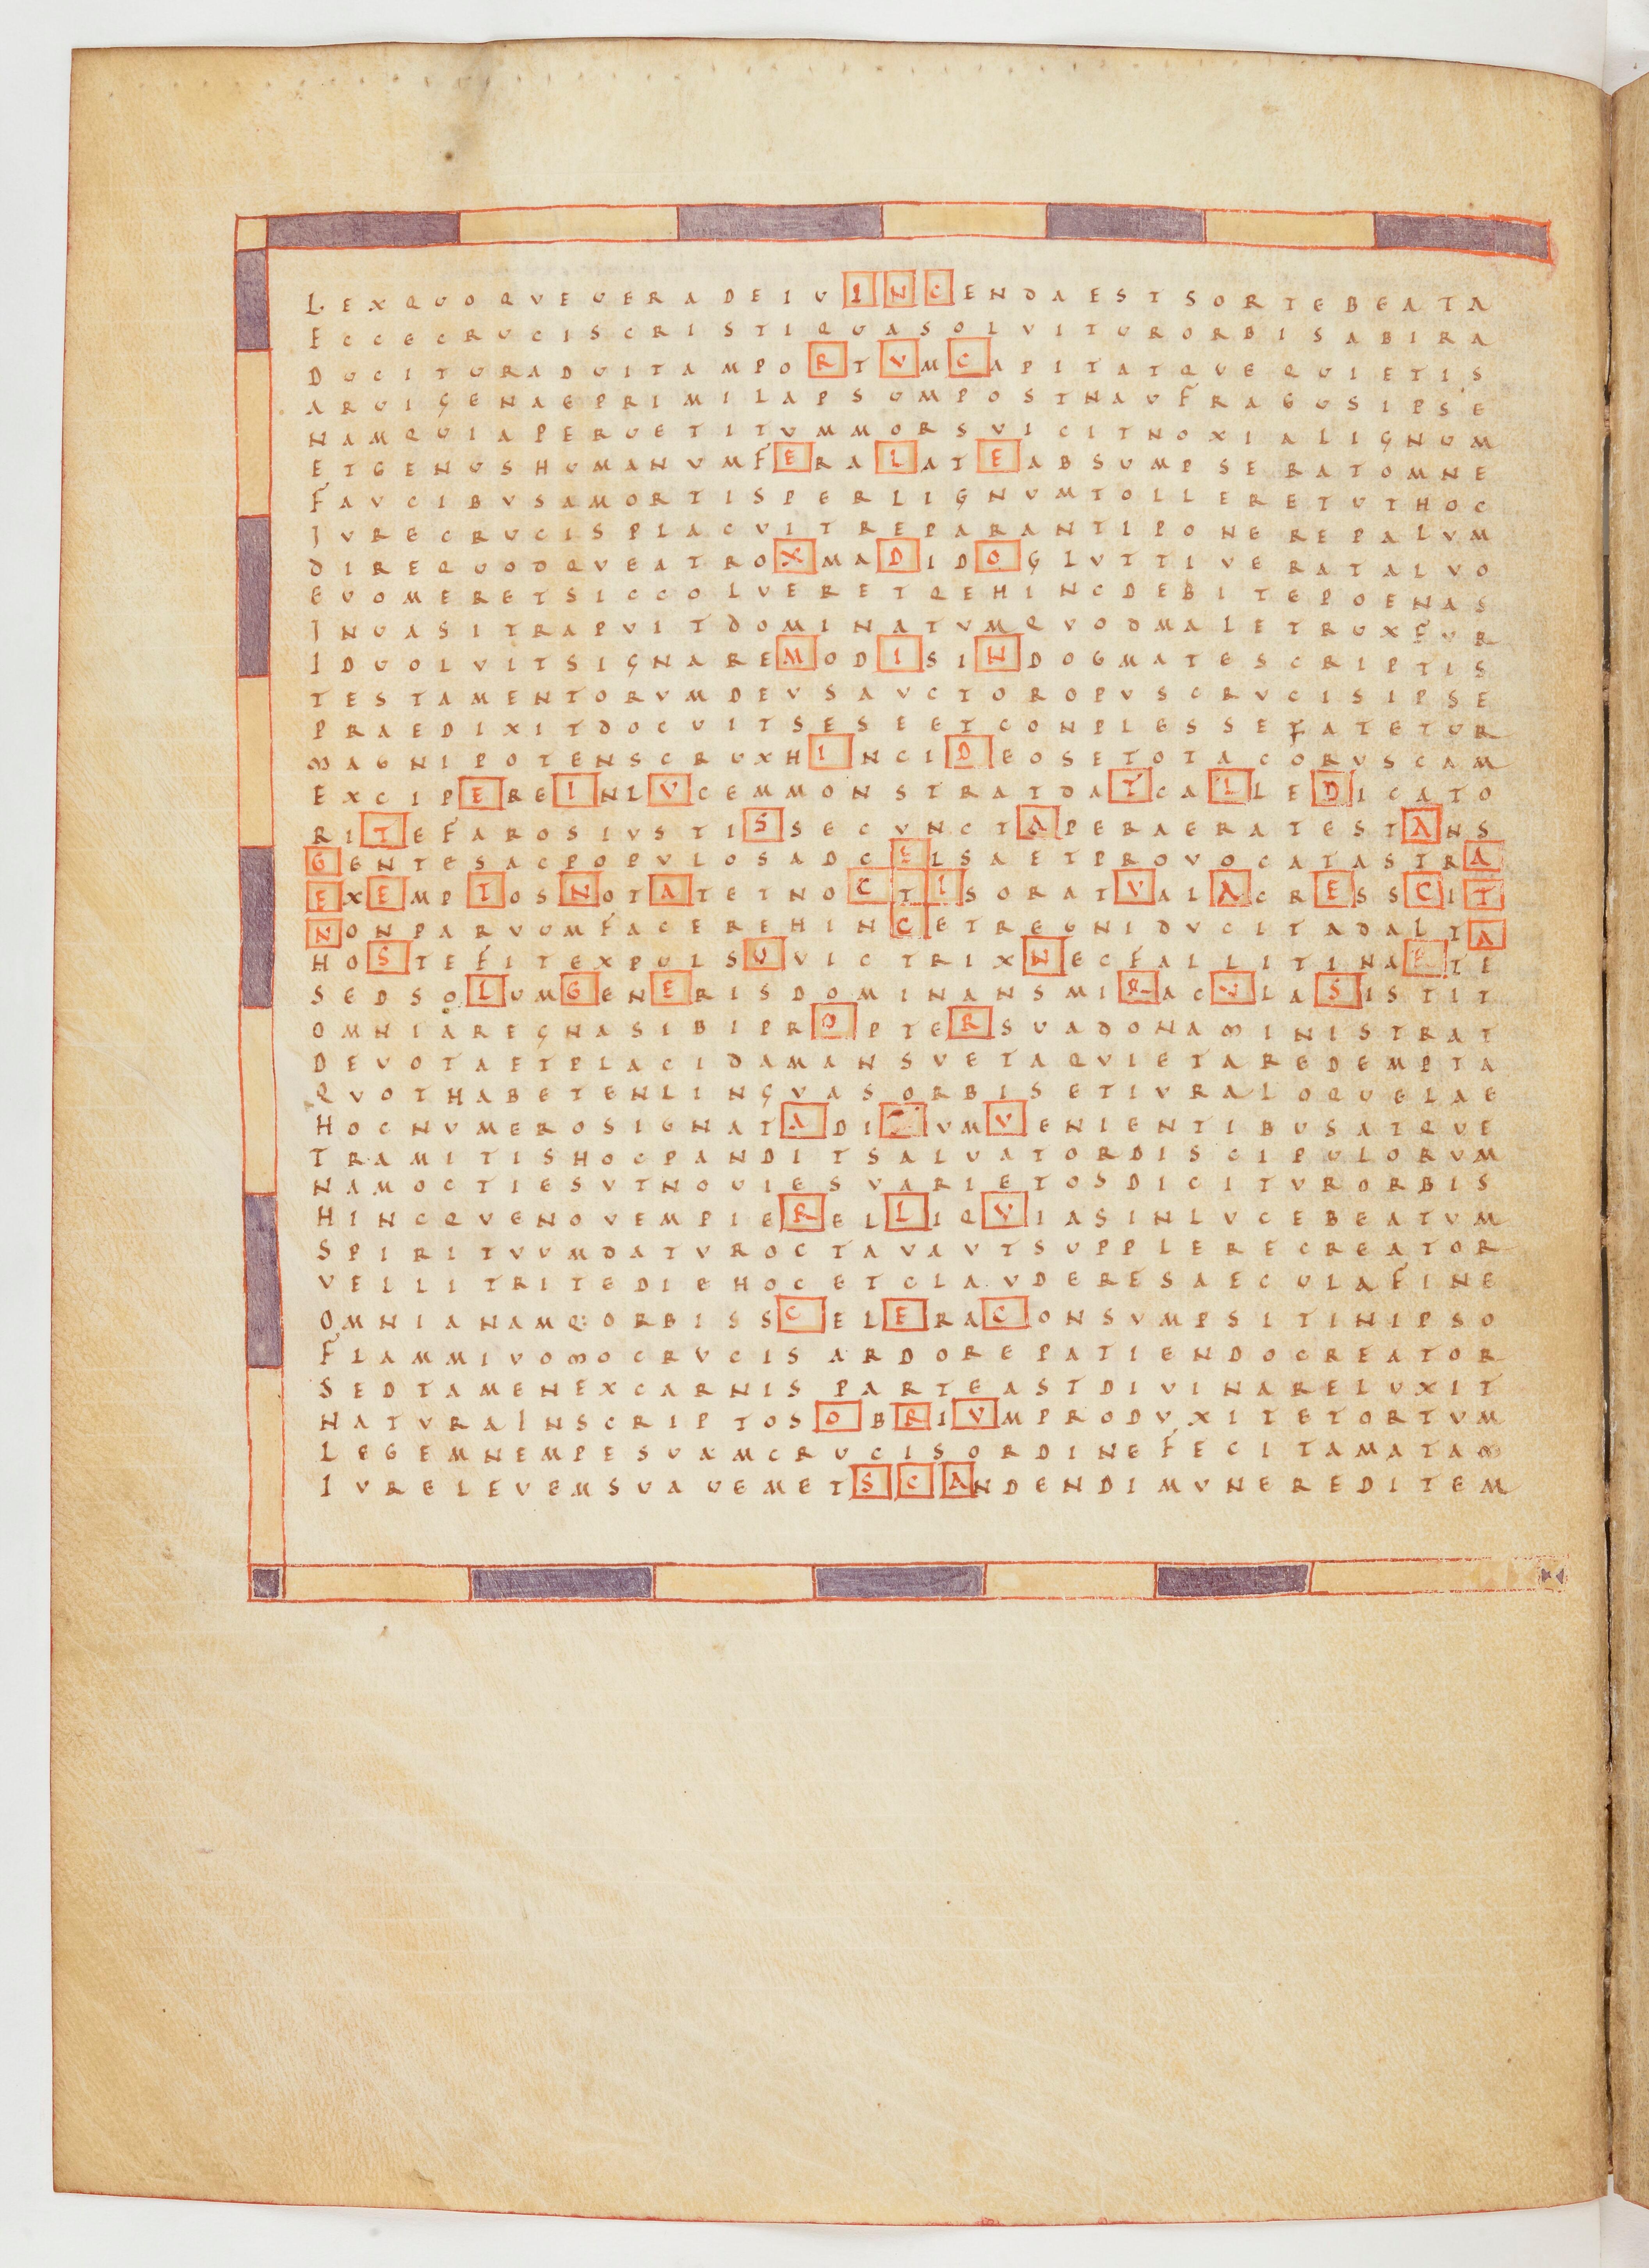 LEXQUOQVEUERADEIUINCENDAESTSORTEBEATA
ECCECRUCISCRISTIQUASOLVITURORBISABIRA
DUCITURADUITAMPORTVMCAPITATQVEQUIETIS
ARUIGENAEPRIMILAPSUMPOSTNAUFRAGUSIPSE
NAMQUIAPERUETITVMMORSVICITNOXIALIGNUM
ETGENUSHUMANVMFERALATEABSUMPSERATOMNE
FAVCIBVSAMORTISPERLIGNVMTOLLERETUTHOC
IVRECRUCISPLACVITREPARANTIPONEREPALVM
DIREQUODQVEATROXMADIDOGLVTTIVERATALVO
EUOMERETSICCOLVERETQEHINCDEBITEPOENAS
INUASITRAPVITDOMINATVMQVODMALETRUXFUR
IDUOLVITSIGNAREMODISINDOGMATESCRIPTIS
TESTAMENTORVMDEVSAVCTOROPVSCRVCISIPSE
PRAEDIXITDOCUITSESEETCONPLESSEFATETUR
MAGNIPOTENSCRUXHINCIDEOSETOTACORVSCAM
EXCIPEREINLVCEMMONSTRATDATCALLEDICATO
RITEFAROSIVSTISSECVNCTAPERAERATESTANS
GENTESACPOPVLOSADCELSAETPROVOCATASTRA
EXEMPTOSNOTATETNOCTISORATVALACRESSCIT
NONPARVUMFACEREHINCETREGNIDVCITADALTA
HOSTEFITEXPULSUVICTRIXNECFALLITINAETI
SEDSOLUMGENERISDOMINANSMIRACVLASISTIT
OMNIAREGNASIBIPROPTERSVADONAMINISTRAT
DEVOTAETPLACIDAMANSVETAQVIETAREDEMPTA
QVOTHABETENLINGVASORBISETIVRALOQUELAE
HOCNUMEROSIGNATADITVMVENIENTIBUSATQVE
TRAMITISHOCPANDITSALUATORDISCIPULORVM
NAMOCTIESVTNOUIESVARIETOSDICITVRORBIS
HINCQVENOVEMPIERELLIQVIASINLVCEBEATVM
SPIRITVUMDATVROCTAVAVTSUPPLERECREATOR
VELLITRITEDIEHOCETCLAVDERESAECULAFINE
OMNIANAMQ:ORBISSCELERACONSVMPSITINIPSO
FLAMMIVOMOCRVCISARDOREPATIENDOCREATOR
SEDTAMENEXCARNISPARTEASTDIVINARELUXIT
NATVRAINSCRIPTOSOBRIVMPRODVXITETORTVM
LEGEMNEMPESUAMCRUCISORDINEFECITAMATAM
IVRELEVEMSUAUEMETSCANDENDIMVNEREDITEM